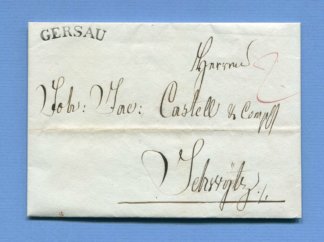 GERSAU
Herrn
Joh: Jac: Castell & Comp
Schwÿtz